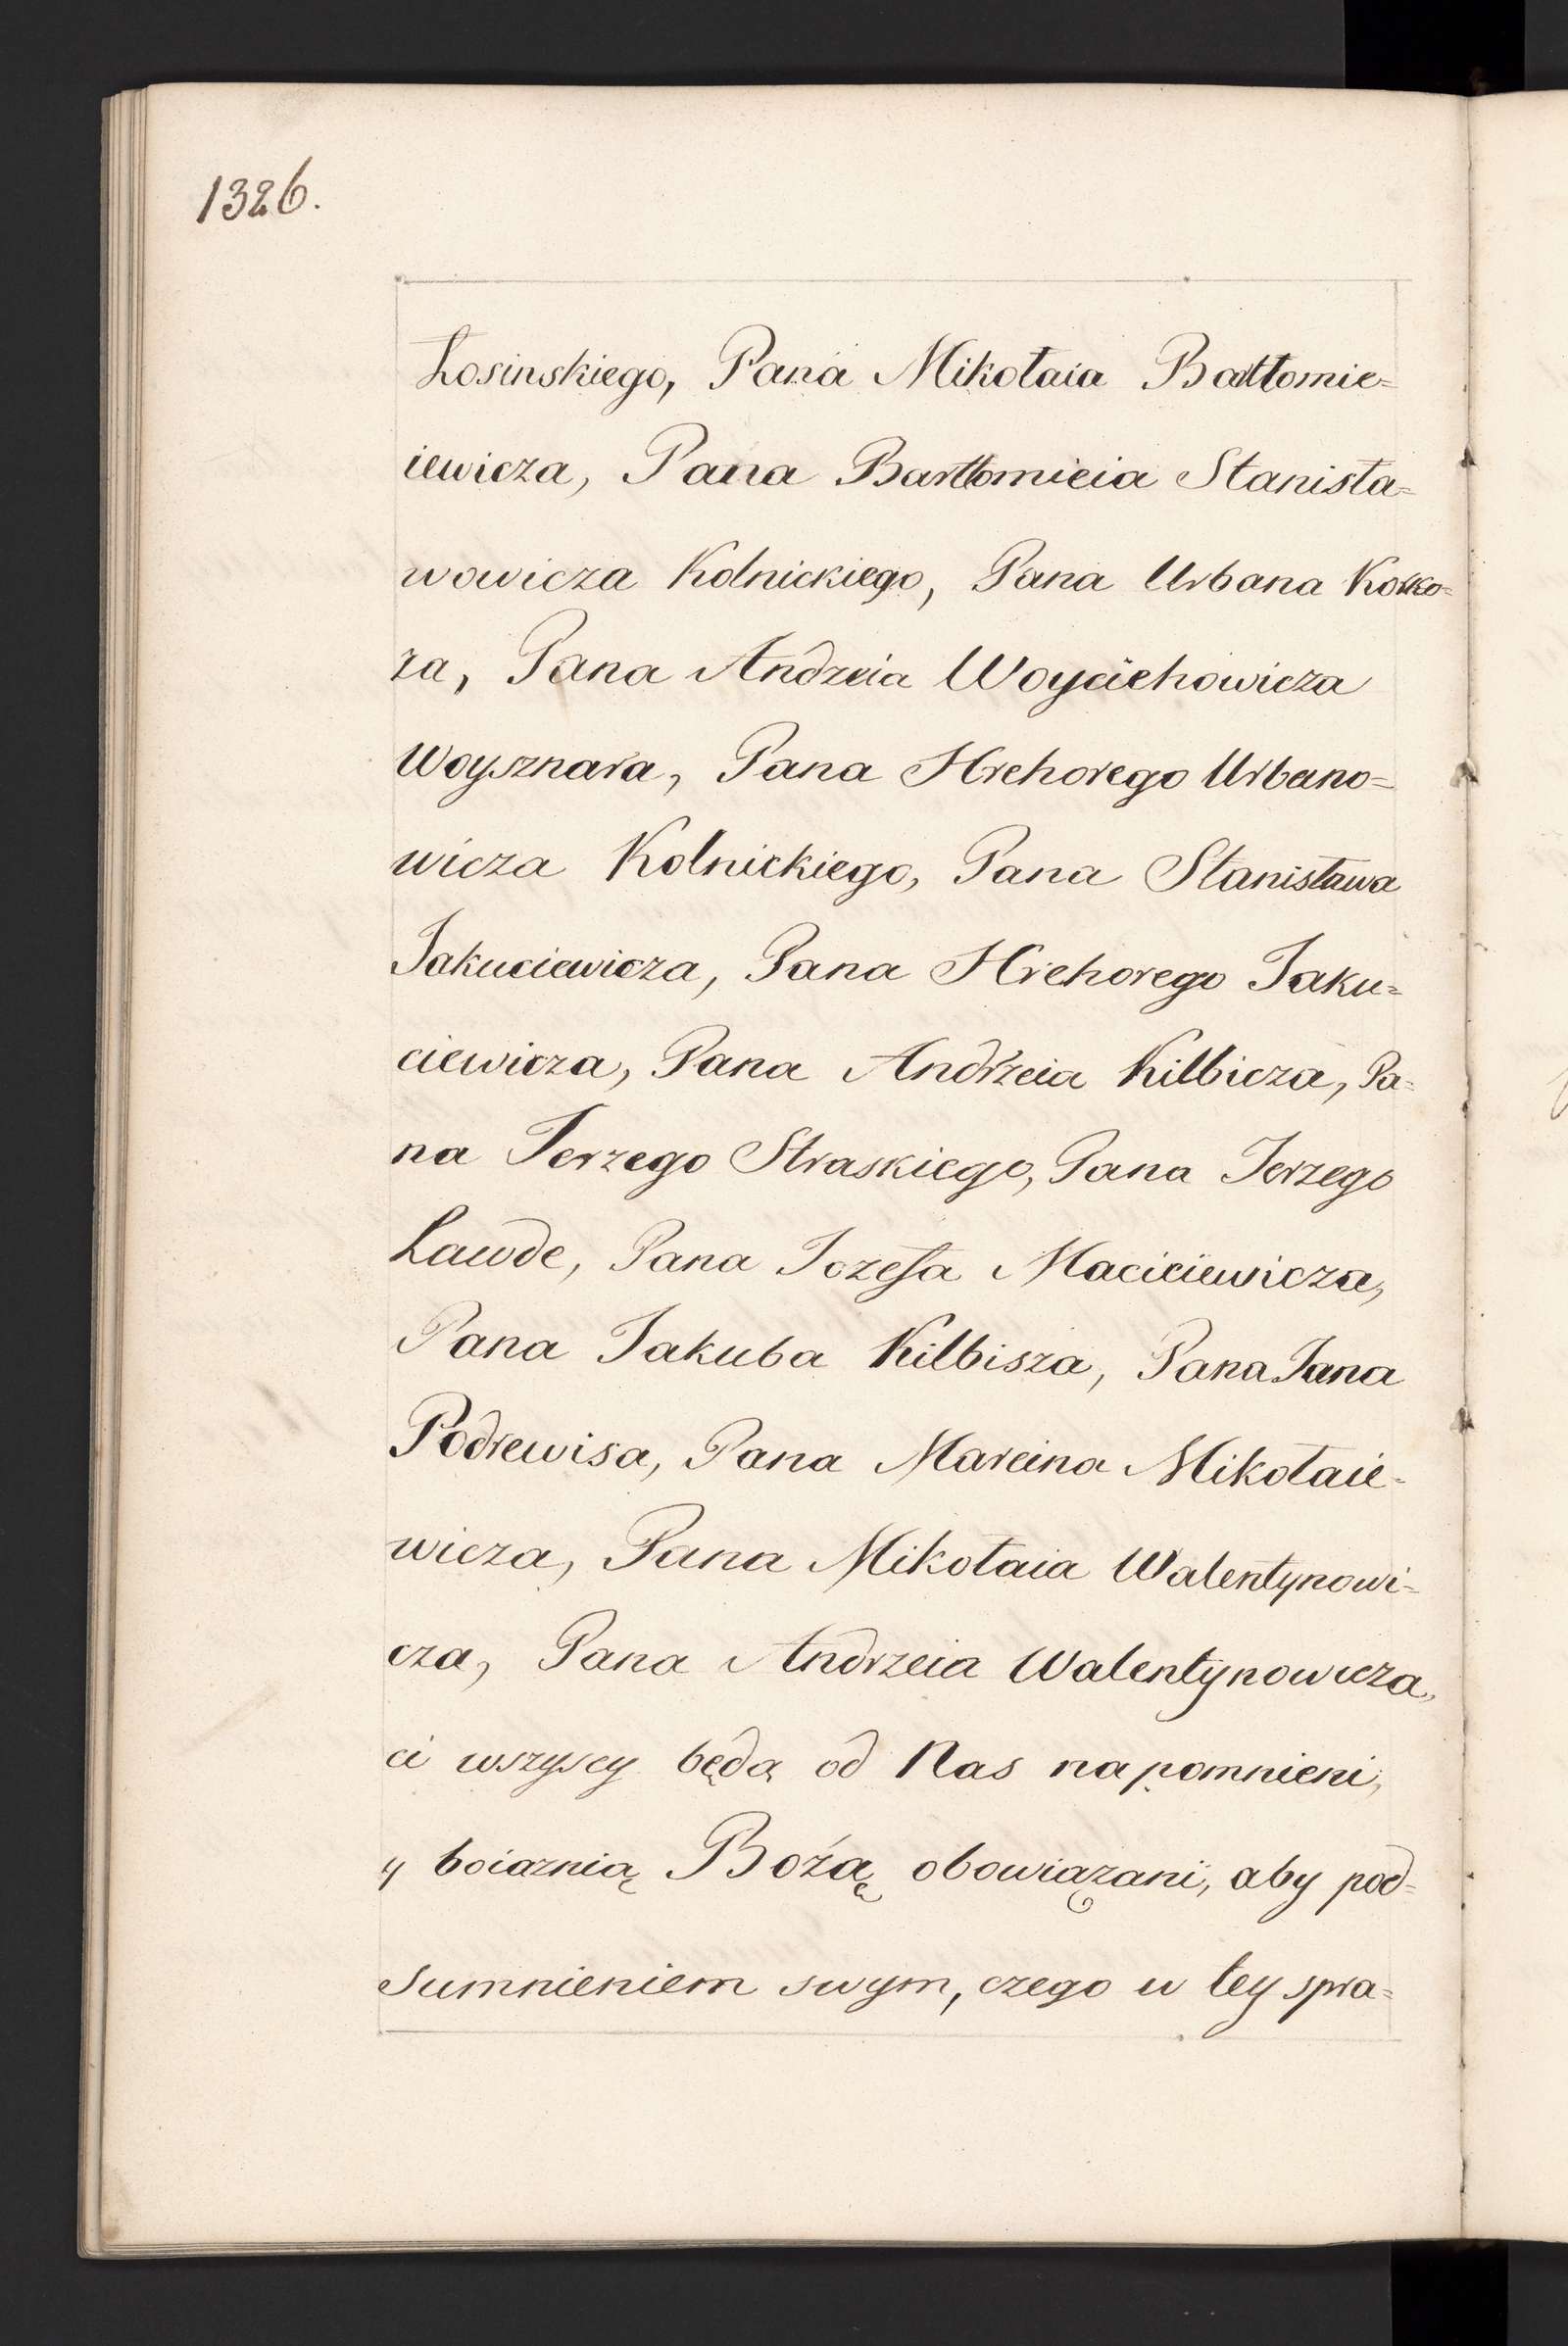 1326.
Łosinskiego, Pana Mikołaia Bartłomie=
iewicza, Pana Bartłomieia Stanisła=
wowicza Kolnickiego, Pana Urbana Korko=
za, Pana Andzeia Woyciehowicza
Woysznara, Pana Hrehorego Urbano=
wicza Kolnickiego, Pana Stanisława
Jakuciewicza, Pana Hrehorego Jaku=
ciewicza, Pana Andrzeia Kilbicza, Pa=
na Jerzego Straskiego, Pana Jerzego
Ławde, Pana Jozefa Macieiewicza,
Pana Jakuba Kilbisza, Pana Jana
Podrewisa, Pana Marcina Mikołaie=
wicza, Pana Mikołaia Walentynowi=
cza, Pana Andrzeia Walentynowicza,
ci wszyscy będą od Nas napomnieni,
y boiaznią Bożą obowiązani, aby pod=
sumnieniem swym, czego w tey spra=